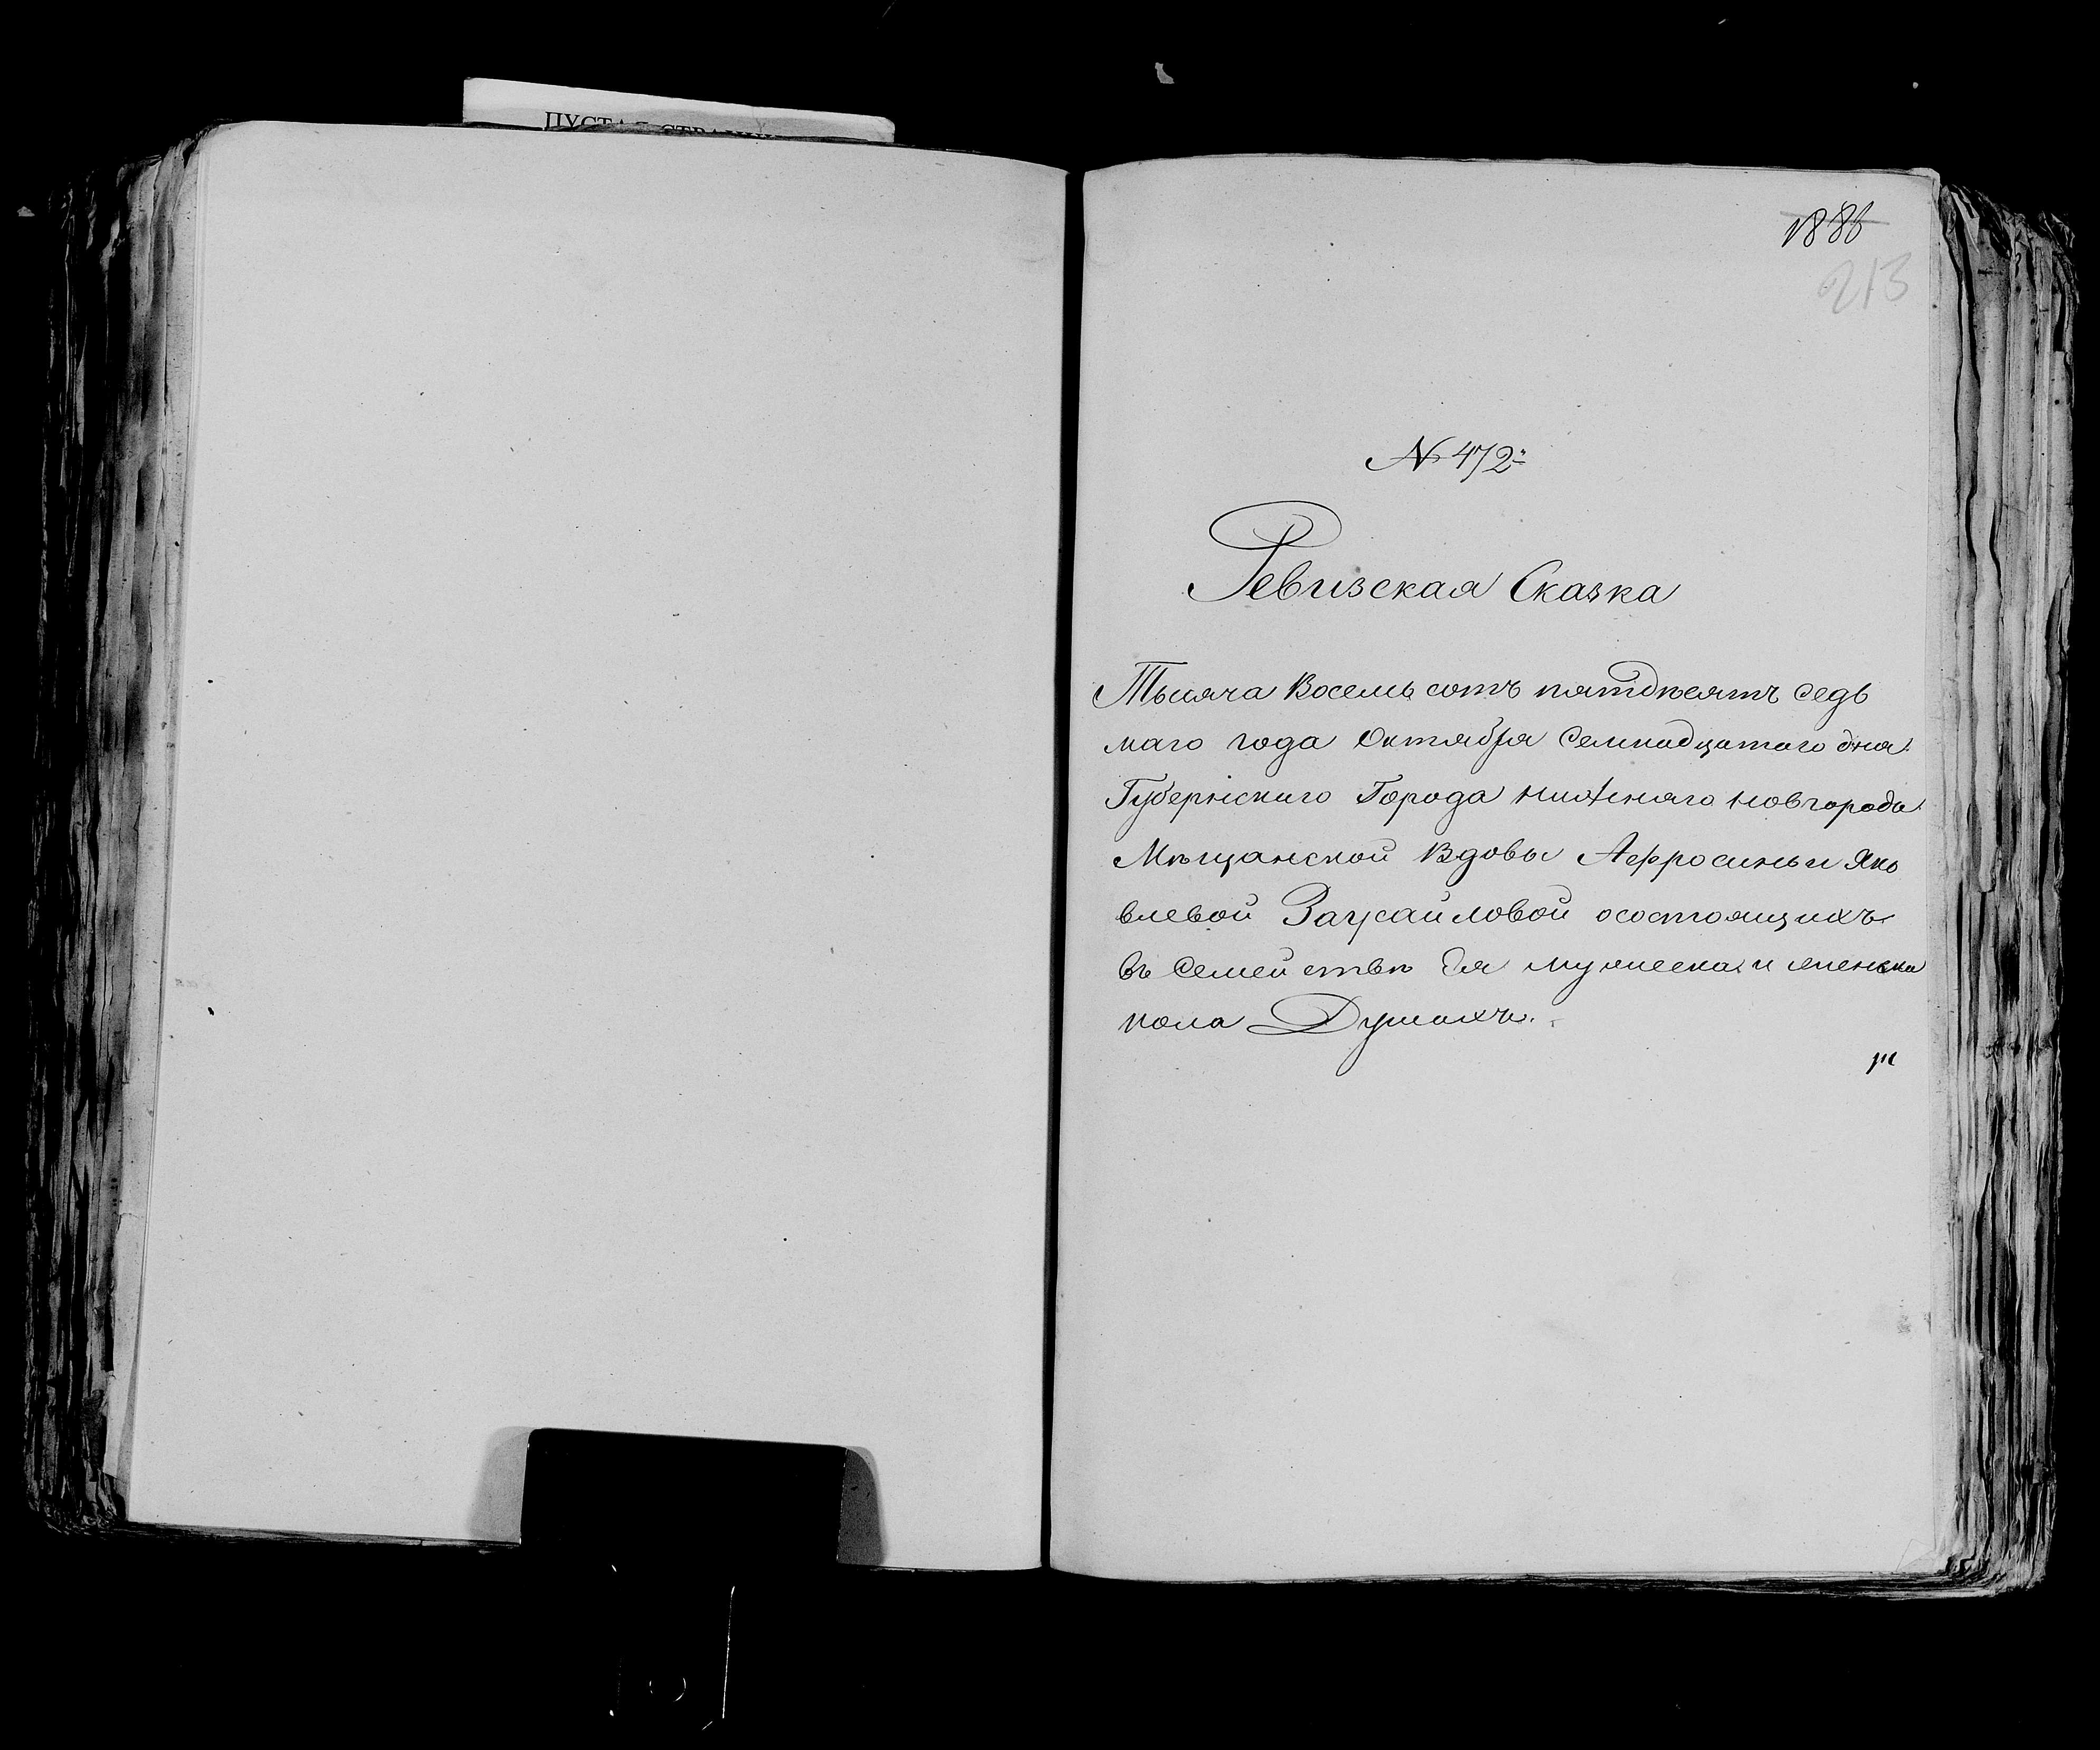 ПУСТАЯ СТРАНИЦ
1886
213
№ 472
Ревизская Сказка
Тысяча Восемь сотъ пятдѣсятъ седь
маго года Октября Семнадцатаго дня
Губернскаго Города нижняго новгорода
Мѣщанской Вдовы Афросиньи Яко
влевой Заусайловой осостоящихъ
въ Семействѣ Ея мужеска и женска
пола Душахъ.